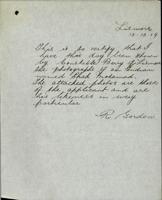 Lismore
12-10-19
This is to certify, that I
have this day been shown
by Constable Berry of Lismore
the photographs of an Indian
named
The attached photos are those
of the applicant and are
his likeness in every
particular
R. Gordon